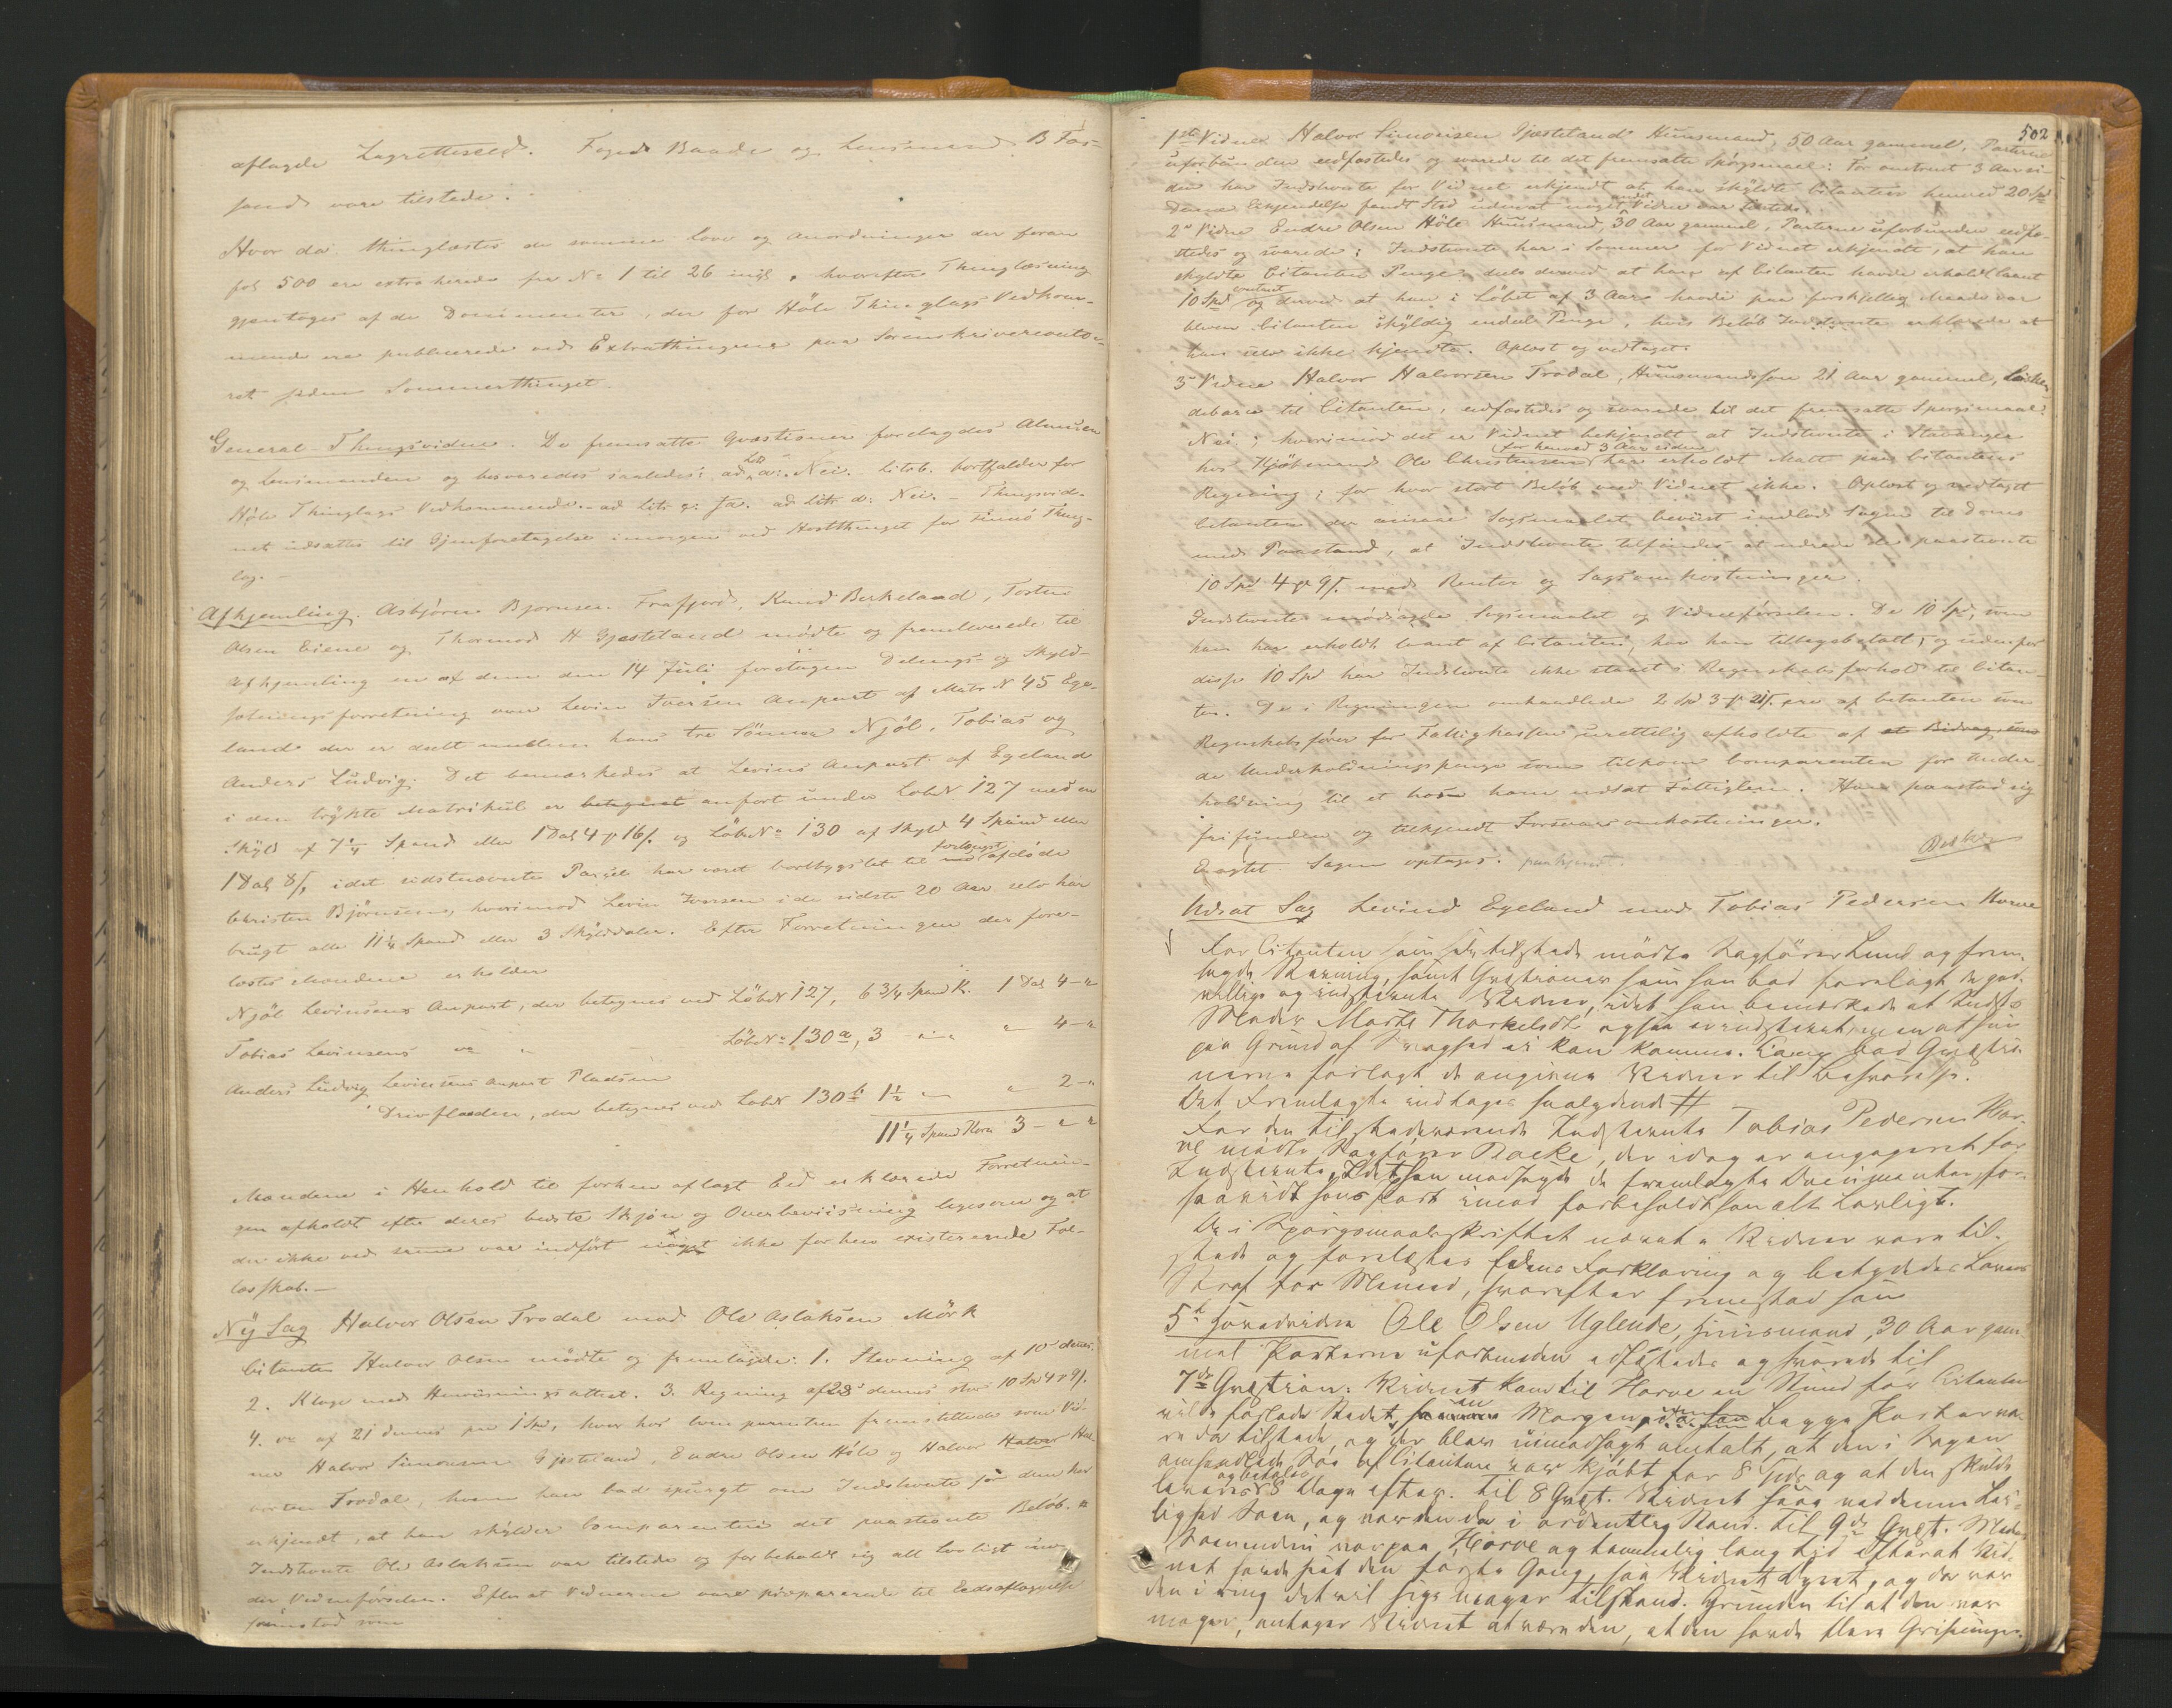 aflagde Lagrettiseed. Foged Baade og Lensmand B Fos-
sand vare tilstede.
Hvor da thinglæstes de samme Love og Anordninger der foran
fol 500 ere extraherede fra No 1 til 26 incl, hvorefter Thinglæsning
gjentoges af de Documenter, der for Höle Thinglags Vedkom-
mende ere publicerede ved Extrathingene paa Sorenskrivercontoi-
ret siden Sommerthinget.
General Thingsvidne. De fremsatte Qvæstioner forelagdes Almuen
og Lensmanden og besvaredes saaledes: ad Litr a: Nei. Litr b. bortfalder for
Höle Thinglags Vedkommende. - ad litr c: Ja. ad litr d: Nei. - Thingsvid-
net udsættes til Gjenforetagelse imorgen ved Høstthinget for Thing-
lag. -
Afhjemling. Asbjörn Bjørnsen Frafjord, Knud Berkeland, Torsten
Olsen Eiene og Thormod H Gjesteland mødte og fremleverede til
Afhjemling en af dem den 14 Juli foretagen Delings- og Skyld-
sætningsforretning over Levin Iversen Anpart af Matr No 45 Ege-
land der er deelt mellem hans tre Sönner Njöl, Tobias og
Anders Ludvig. Det bemærkedes at Levins Anpart af Egeland
i den trykte Matrikul er betegnet anfört under LöbNo 127 med en
Skyld af 7 1/4 Spand eller 1 Dal 4 p 16/. og LöbeNo 130 af Skyld 4 Spand eller
1 Dal 8/, idet sidstnævnte Parcel har været bortbygslet til forlængst afdöde
Christen Björnsen, hvorimod Levin Iversen i de sidste 20 Aar selv har
brugt alle 11 1/4 Spand eller 3 Skylddaler. Efter Forretningen der fore-
læstes Mændene erholder
Njöl Levinsens Anpart, der betegnes ved LöbeNo 127, 6 3/4 Spand K. 1 Dal 4 - "
Tobias Levinsens " " LöbeNo 130 a, 3 " " 4 - "
Anders Ludvig Levinsens anpart Pladsen
, der betegnes ved LobNo 130 b 1 1/2 " " 2 - "
11 1/4 Spand Korn 3 - " "
Mændene i Henhold til forhen aflagt Eed erklærede Forretnin-
gen afholdt efter deres bedste Skjön og Overbeviisning ligesom og at
der ikke ved samme var indfört noget ikke forhen existerende Fæl-
lesskab. -
Ny Sag Halvor Olsen Trodal mod Ole Aslaksen Mörk
Citanten Halvor Olsen mødte og fremlagde: 1. Stevning af 10 dennes.
2. Klage med Henviisningsattest. 3. Regning af 28 dennes stor 10 Spd 4 p 9/.
4. do af 21 dennes paa 1 Spd, hvorhos Comparenten fremstillede som Vid-
ner Halvor Simonsen Gjesteland, Endre Olsen Höle og Halvor Halvor Hal-
vorsen Trodal, hvem han bad spurgt om Indstevnte for dem har
erkjendt, at han skylder Comparenten det paastevnte Beløb.
Indstevnte Ole Aslaksen var tilstede og forbeholdt sig alt lovligt un-
der Vidneförselen. Efterat Vidnerne vare præparerede til Eedsaflæggelse
fremstod som
502
1ste Vidne Halvor Simonsen Gjestelands Huusmand, 50 Aar gammel, Parterne
uforbunden eedfæstedes og svarede til det fremsatte Spørgsmaal: For omtrent 3 Aar si-
den har Indstevnte for Vidnet erkjendt at han skyldte Citanten henved 20 Spd
Denne Erkjendelse fandt Sted uden at noget andet Vidne var tilstede.
2det Vidne Endre Olsen Höle Huusmand, 30 Aar gammel, Parterne uforbunden eedfæ-
stedes og svarede: Indstevnte har i Sommer for Vidnet erkjendt, at han
skyldte Citanten Penge, deels derved at han af Citanten havde erholdt laant
10 Spd contant og derved at han i Löbet af 3 Aar havde paa forskjellig Maade var
bleven Citanten skyldig endeel Penge, hvis Belöb Indstevnte erklærede at
han selv ikke kjendte. Oplæst og vedtaget.
3die Vidne Halvor Halvorsen Trodal, Huusmandssøn 21 Aar gammel,
til Citanten, eedfæstedes og svarede til det fremsatte Spørgsmaal:
Nei; hvorimod det er Vidnet bekjendt at Indstevnte i Stavanger
hos Kjöbmand Ole Christensen for henved 3 Aar siden har erholdt Malt paa Citantens
Regning; for hvor stort Belöb veed Vidnet ikke. Oplæst og vedtaget
Citanten der ansaae Søgsmaalet beviist indlod Sagen til Doms
med Paastand, at Indstevnte tilfindes at udrede de paastevnte
10 Spd 4 p 9/. med Renter og Sagsomkostninger.
Indstevnte modsagde Sogsmaalet og Vidneförselen. De 10 Spd, som
han har erholdt laant af Citanten, har han tilbagebetalt; og udenfor
disse 10 Spd har Indstevnte ikke staaet i Regnskabsforhold til Citan-
ten. De i Regningen omhandlede 2 Spd 3 p 21/. ere af Citanten som
Regnskabsfører for Fattigkassen urettelig afholdte af et Bidrag, som
de Underholdningspenge som tilkom Comparenten for Under-
holdning til et hos ham udsat Fattiglem. Han paastod sig
frifunden og tilkjendt Forsvarsomkostninger.
Eragtet Sagen optages. paakjendt.
Udsat Sag Levind Egeland mod Tobias Pedersen Horve
For Citanten som er tilstede mödte Sagförer Lund og frem-
lagde Stevning, samt Qvæstioner som han bad forelagt de god-
villige og indstevnte Vidner, idet han bemærkede at Indst.
Moder Marte Thorkelsdtr ogsaa er indstevnt, men at hun
paa Grund af Svaghed ei kan komme. Comp bad Qvæstio-
nerne forelagt de angivne Vidner til Besvarelse.
Det Fremlagte indtages saalydende #
For den tilstedeværende Indstevnte Tobias Pedersen Hor-
ve mödte Sagförer Racke, der idag er engageret for
Indstevnte. Idet han modsagde de fremlagte Documenter for-
saavidt hans Part imod forbeholdt han alt Lovligt.
De i Spörgsmaalsskriftet nævnte Vidner vare til-
stede og forelæstes Edens Forklaring og betydedes Lovens
Straf for Meneed, hvorefter fremstod som
5te Hovedvidne Ole Olsen Uglende, Huusmand, 30 Aar gam-
mel Parterne uforbunden edfæstedes og svarede til
7de Qvæstion: Vidnet kom til Horve en Stund før Citanten
vilde forlade Stedet, en Morgen, Begge Parter va-
re da tilstede, og der blev uimodsagt omtalt, at den i Sagen
omhandlede So af Citanten var kjöbt for 8 Spd og at den skulde
leveres og betales 8 Dage efter. Til 8 Qvæst. Vidnet saae ved denne Lei-
lighed Soen, og var den da i ordentlig Stand. Til 9de Qvæst. Medens
Svinet var paa Horve og temmelig lang tid efterat Vid-
net havde seet den første Gang, saa Vidnet Dyret, og da var
den i ring det vil sige mager tilstand. Grunden til at den var
mager, antager Vidnet at være den, at den havde flere Grisunger.